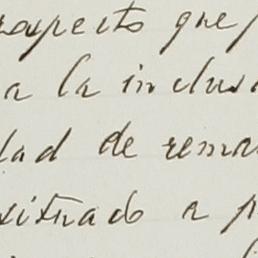 respecto que p
a la inclus
dad de rema
situado a p